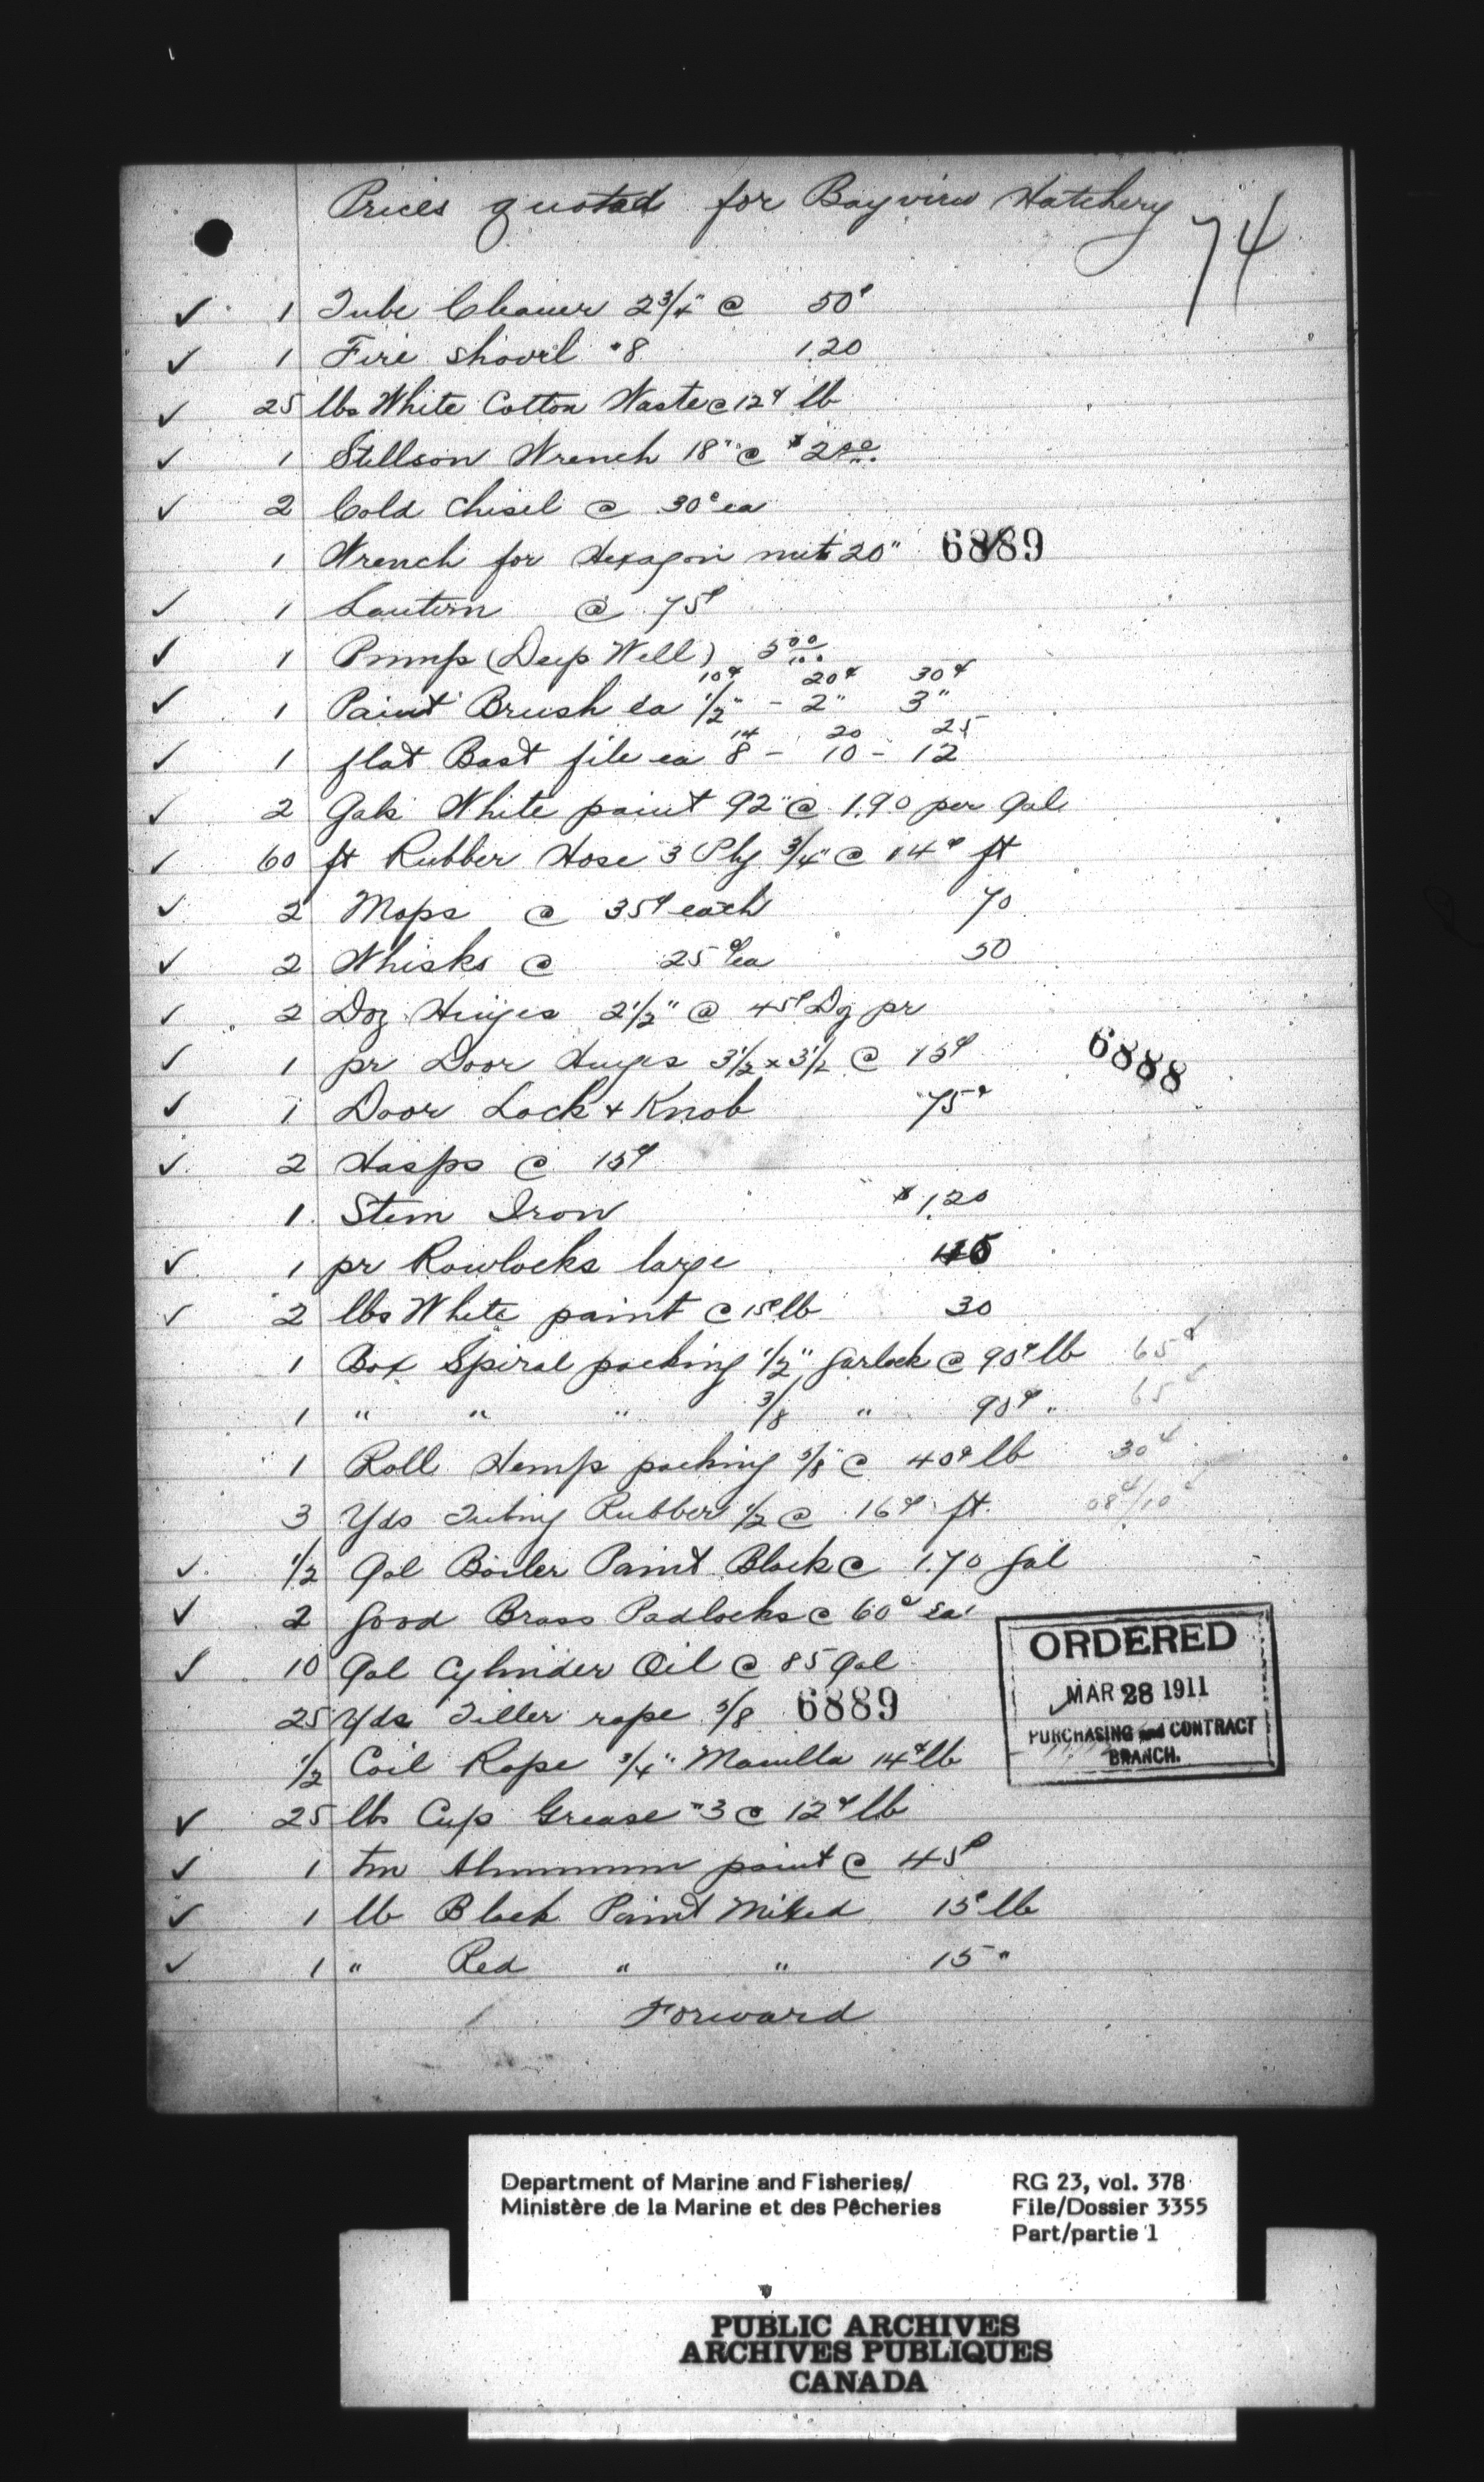 Prices quoted for Bayview Hatchery
74
✓ 1 Tube Cleaner 2 3/4" @ 50¢
✓ 1 Fire Shovel #8 1.20
✓ 25 lbs White Cotton Waste @ 12¢ lb
✓ 1 Stillson Wrench 18" @ $2.00
✓ 2 Cold Chisel @ 30¢ ea
1 Wrench for Hexagon nut 20" 6889
✓ 1 Lantern @ 75¢
✓ 1 Pump (Deep Well) 5.00
10¢ 20¢ 30¢
✓ 1 Paint Brush ea 1/2" - 2" 3"
14 20 25
✓ 1 flat Bast file ea 8 - 10 - 12
✓ 2 Gals White paint 92" @ 1.90 per Gal
✓ 60 ft Rubber Hose 3 Ply 3/4" @ 14¢ ft
✓ 2 Mops @ 35¢ each 70
✓ 2 Whisks @ 25¢ ea 50
✓ 2 Doz Hinges 2 1/2" @ 45¢ Dz pr
✓ 1 pr Door Hinges 3 1/2 x 3 1/2 @ 15¢
6888
✓ 1 Door Lock + Knob 75¢
✓ 2 Hasps @ 15¢
1 Stem Iron $1.20
✓ 1 pr Rowlocks large
✓ 2 lbs White paint @ 15¢ lb 30
1 Box Spiral packing 1/2" Garlock @ 90¢ lb 65¢
1 " " " 3/8 " 90¢ " 65¢
1 Roll Hemp packing 5/8" @ 40¢ lb 30¢
3 Yds Tubing Rubber 1/2 @ 16¢ ft. 08¢/10¢
✓ 1/2 Gal Boiler Paint Black @ 1.70 Gal
✓ 2 Good Brass Padlocks @ 60¢ Ea
✓ 10 Gal Cylinder Oil @ 85 Gal
25 Yds Tiller rope 5/8 6889
1/2 Coil Rope 3/4" Manilla 14¢ lb
✓ 25 lbs Cup Grease #3 @ 12¢ lb
✓ 1 tin Aluminum paint @ 45¢
✓ 1 lb Black Paint Mixed 15¢ lb
✓ 1 " Red " " 15 "
Forward
ORDERED
MAR 28 1911
PURCHASING and CONTRACT
BRANCH.
Department of Marine and Fisheries/
Ministère de la Marine et des Pêcheries
RG 23, vol. 378
File/Dossier 3355
Part/partie 1
PUBLIC ARCHIVES
ARCHIVES PUBLIQUES
CANADA